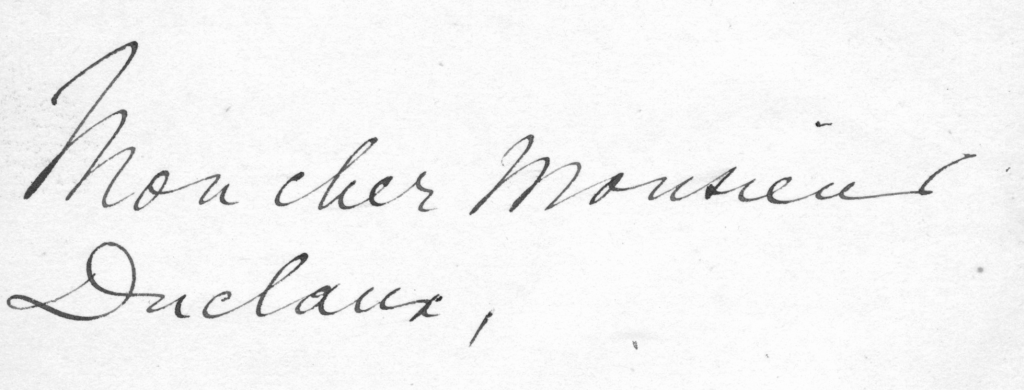 Mon cher Monsieur
Duclaux,